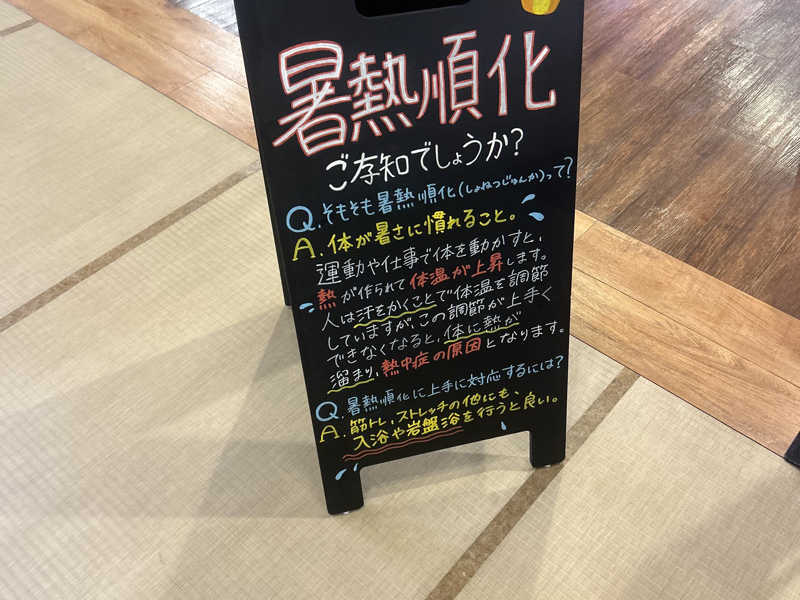 暑熱順化
ご存知でしょうか?
Q.そもそも暑熱順化(しょねつじゅんか)って?
A.体が暑さに慣れること。
運動や仕事で体を動かすと、
熱が作られて体温が上昇します。
人は汗をかくことで体温を調節
していますが、この調節が上手く
できなくなると、体に熱が
溜まり、熱中症の原因となります。
Q.暑熱順化に上手に対応するには?
A.筋トレ、ストレッチの他にも、
入浴や岩盤浴を行うと、良い。